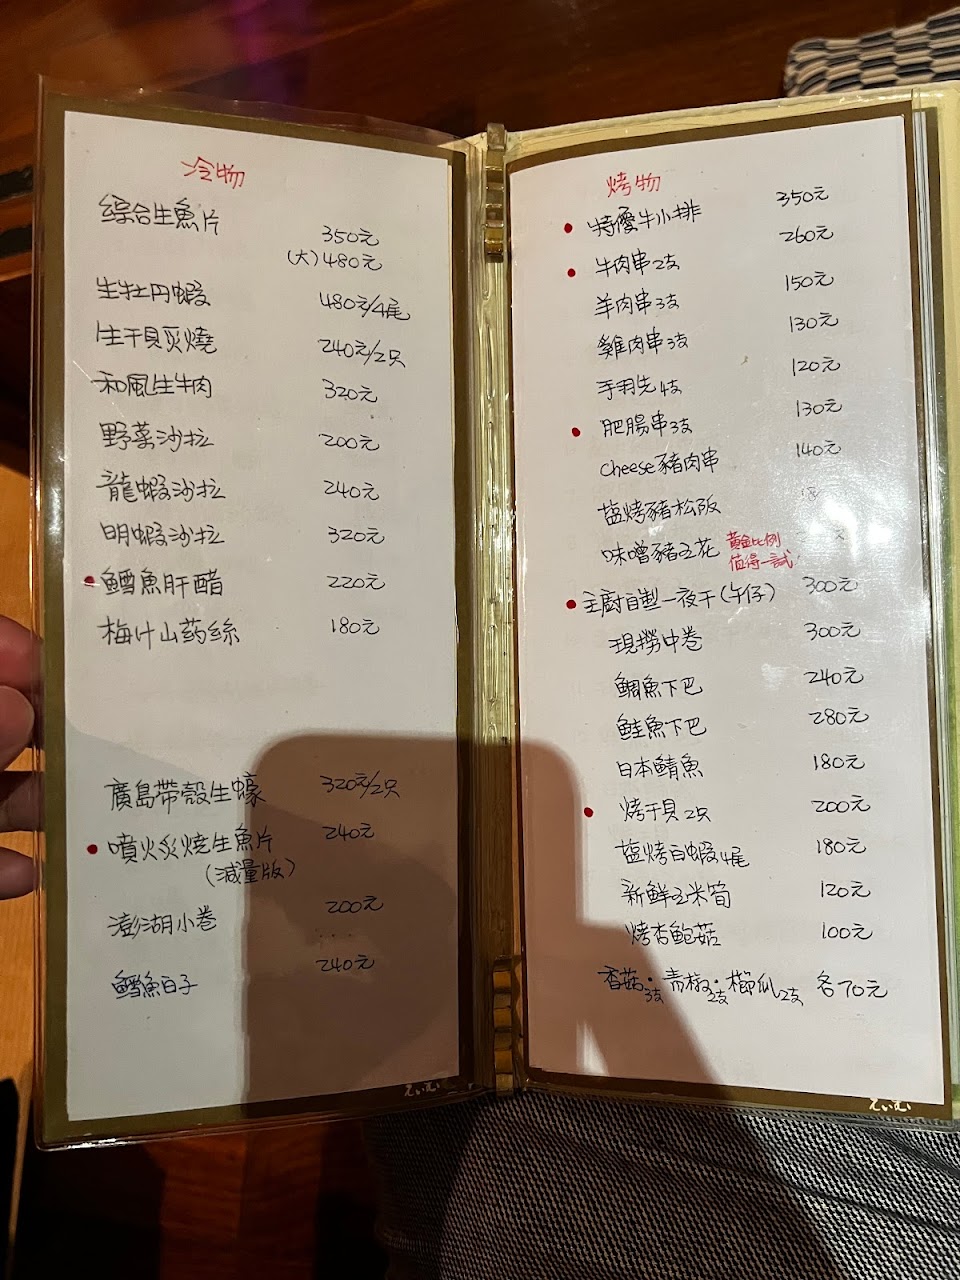 冷物
綜合生魚片 350元
(大)480元
生牡丹蝦 480元/4尾
生干貝炙燒 240元/2只
和風生牛肉 320元
野菜沙拉 200元
龍蝦沙拉 240元
明蝦沙拉 320元
鱈魚肝醋 220元
梅汁山药絲 180元
廣島帶殼生蠔 320元/2只
噴火炙燒生魚片 240元
(減量版)
澎湖小卷 200元
鱈魚白子 240元
えいむい
烤物
特優牛小排 350元
牛肉串2支 260元
羊肉串3支 150元
雞肉串3支 130元
手羽先4支 120元
肥腸串3支 130元
cheese豬肉串 140元
塩烤豬松阪
味噌豬五花 黃金比例
值得一試!
主廚自製一夜干(午仔) 300元
現撈中卷 300元
鯛魚下巴 240元
鮭魚下巴 280元
日本鯖魚 180元
烤干貝2只 200元
塩烤白蝦4尾 180元
新鮮玉米筍 120元
烤杏鮑菇 100元
香菇3支·青椒2支·櫛瓜2支 各70元
えいむい